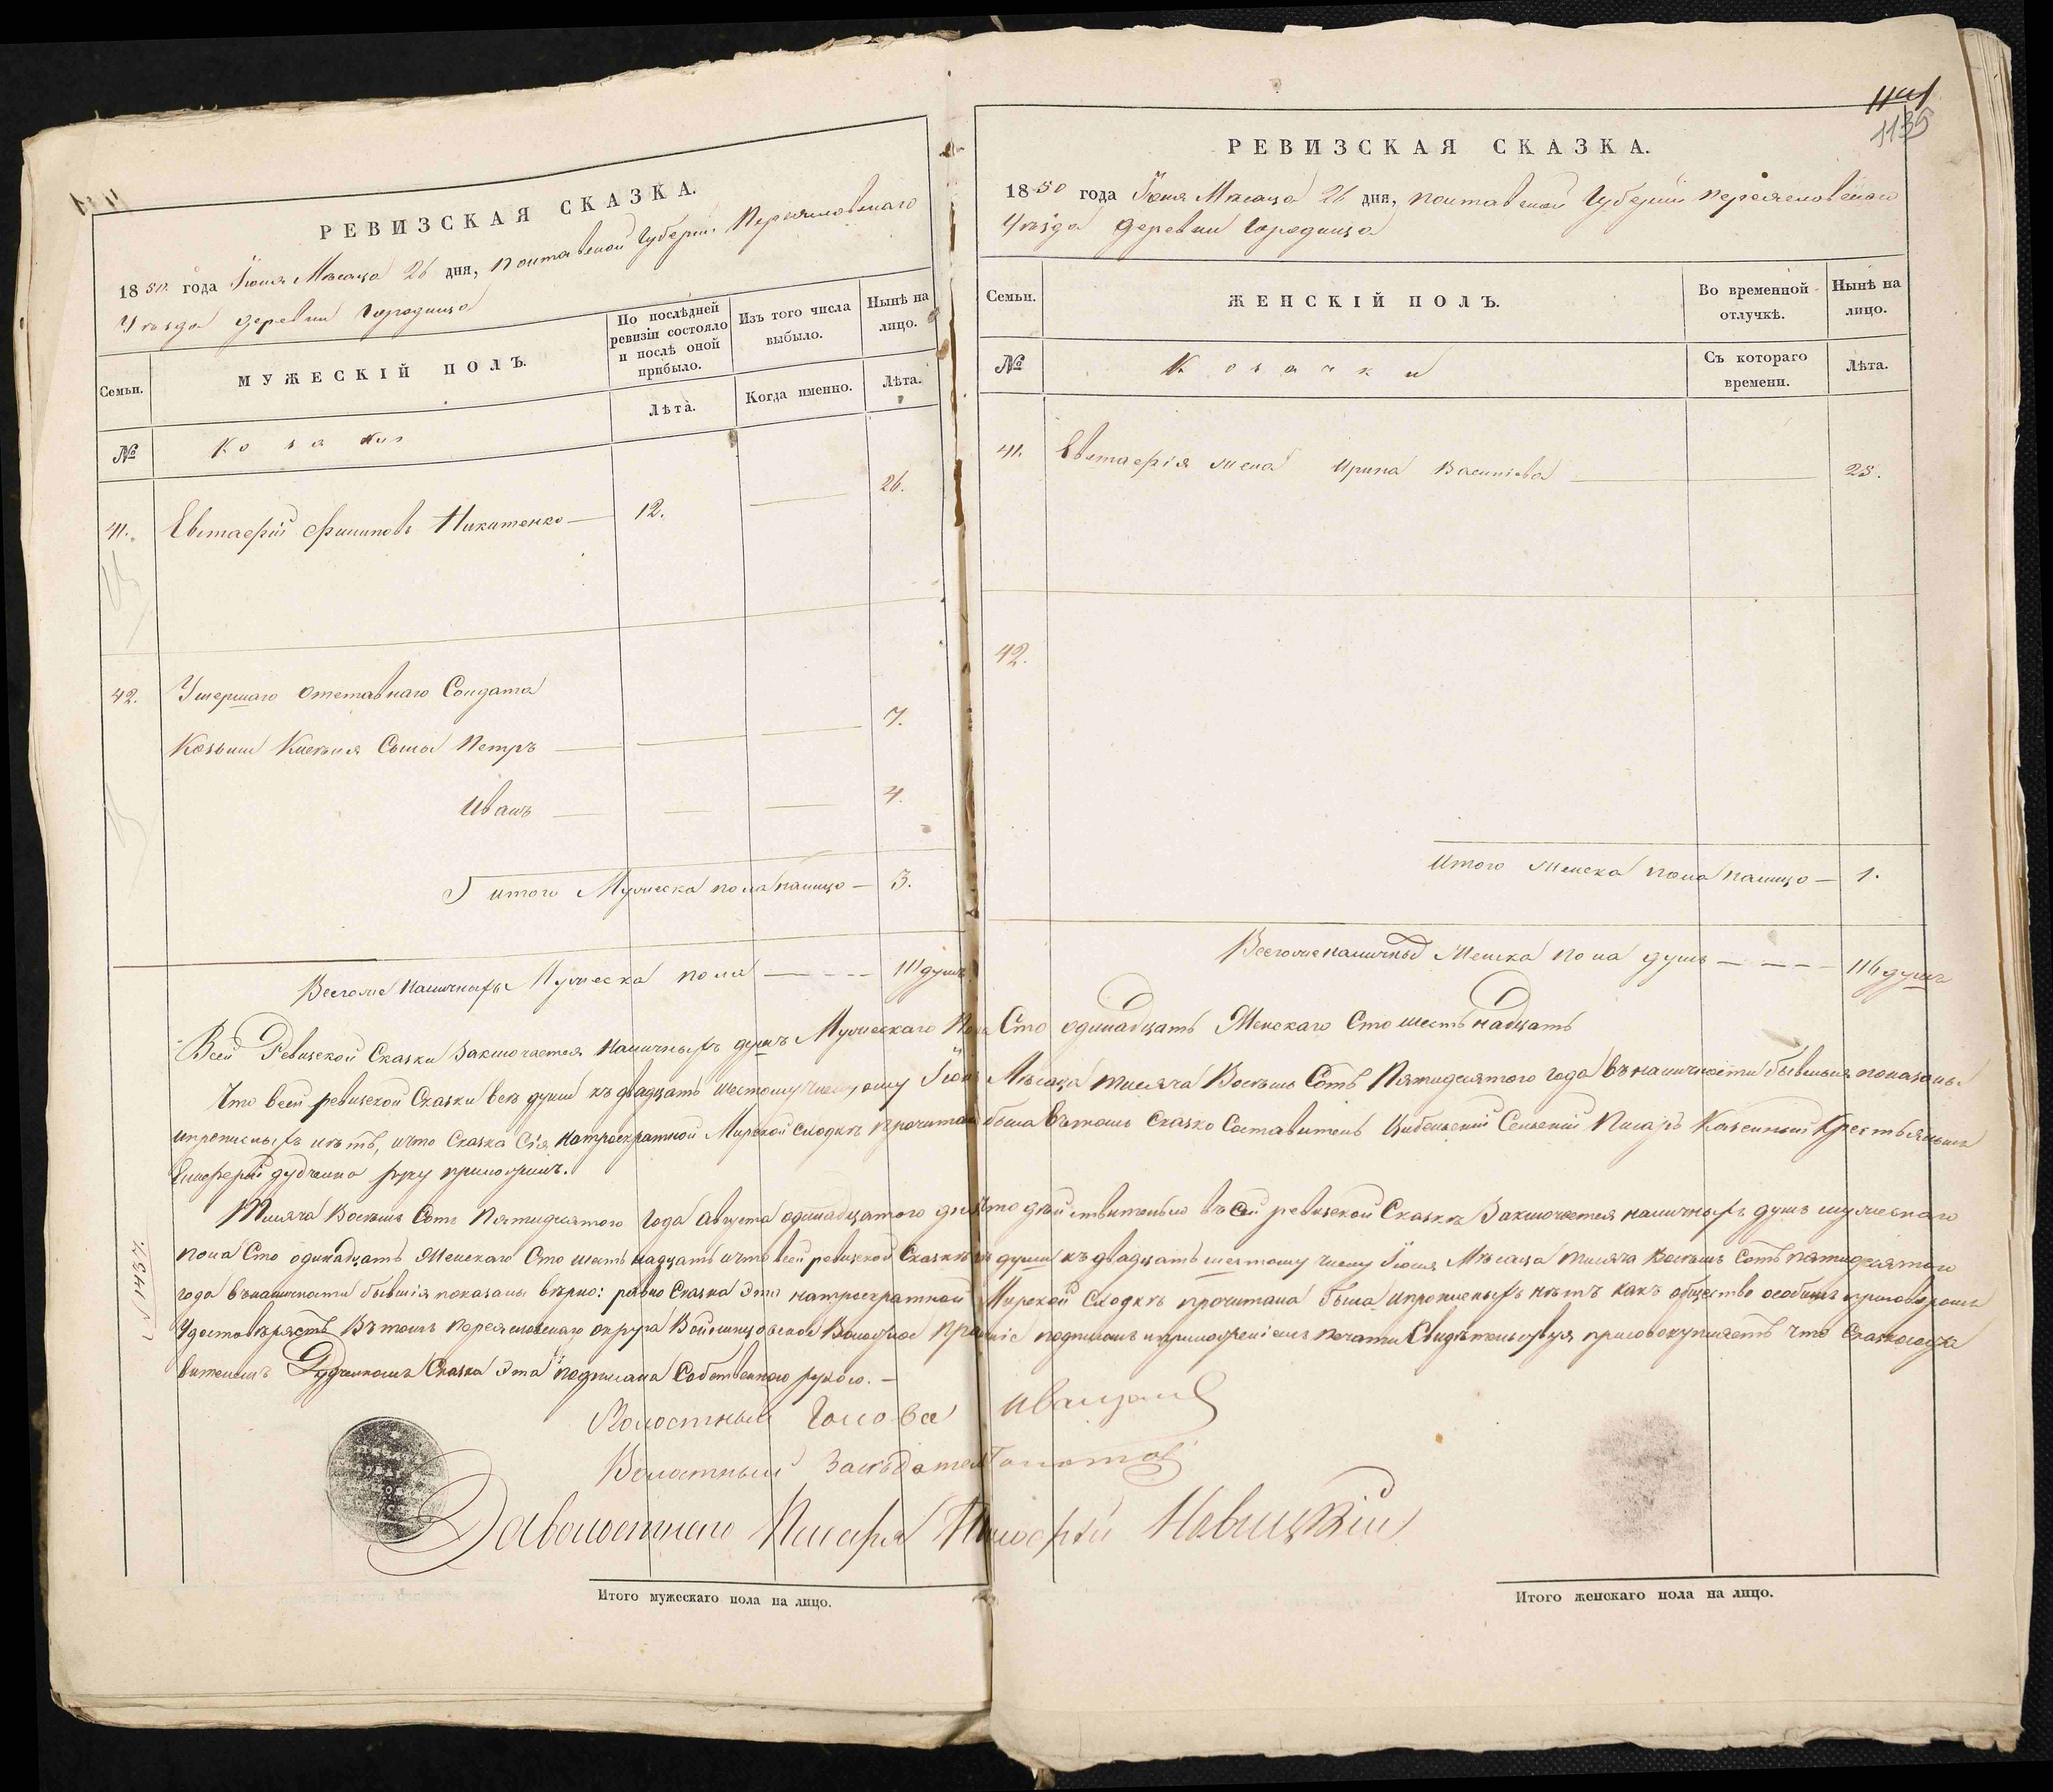 РЕВИЗСКАЯ СКАЗКА.
1850. года Іюня Мѣсяца 26 дня, Полтавской Губерніи Переяславскаго
Уѣзда деревни Городища
Семьи.
МУЖЕСКІЙ ПОЛЪ.
По послѣдней ревизіи состояло и послѣ оной прибыло.
Изъ того числа выбыло.
Нынѣ на лицо.
Лѣта.
Когда именно.
Лѣта.
№
Козаки
41. Евстафій Филиповъ Никитенко — 12. — 26.
42. Умершаго отставнаго Солдата
Козьми Кисѣля Сына Петръ — — — 7.
Иванъ — — — 4.
Итого Мужеска пола налицо — 3.
Всего же наличныхъ Мужеска пола — — — 111 душъ
1135
РЕВИЗСКАЯ СКАЗКА.
1850 года Іюня Мѣсяца 26 дня, Полтавской Губерніи Переяславскаго
Уѣзда деревни Городища
Семьи.
ЖЕНСКІЙ ПОЛЪ.
Во временной отлучкѣ.
Нынѣ на лицо.
№
Козачки
Съ котораго времени.
Лѣта.
41. Евстафія жена Ирина Васильева — 25.
42.
Итого женска пола налицо — 1.
Всего же наличныхъ Женска пола душъ — — — 116 душъ
Всей Ревизской Сказки Заключается наличныхъ душъ Мужескаго Пола Сто одинадцать Женскаго Сто шестьнадцать
Что всей ревизской Сказки всѣ души къ двадцать шестому числу Іюня Мѣсяца тысяча Восѣмь Сотъ Пятидесятого года въ наличности бывшыя показаны
и прописныхъ нѣтъ, и что Сказка Сія на троекратной Мирской сходкѣ прочитана была въ томъ Сказко Составитель Цибельскій Сельскій Писарь Казенный Крестьянинъ
Дудченко руку приложилъ.
Тысяча Восѣмь Сотъ Пятидесятого года Августа одинадцатого дня что дѣйствительно въ Сей ревизской Сказкѣ Заключается наличныхъ душъ мужескаго
пола Сто одинадцать Женскаго Сто шестьнадцать и что всей ревизской Сказкѣ души къ двадцать шестому числу Іюня Мѣсяца тысяча Восѣмь Сотъ пятидесятого
года въ наличности бывшія показаны вѣрно: равно Сказка Эта на троекратной Мирской Сходкѣ прочитана была и прописныхъ нѣтъ какъ общество особымъ приговоромъ
Удостовѣряетъ Въ томъ Переяславскаго округа Войтовское Волостное Правленіе подписомъ и приложеніемъ печати Свидѣтельствуя присовокупляетъ что Сказкососта
вителемъ Дудченкомъ Сказка Эта подписана Собственною рукою. —
№ 1434
Волостный Голова
Волостный Засѣдатель
За волостнаго Писаря Новицкій
Итого мужескаго пола на лицо.
Итого женскаго пола на лицо.